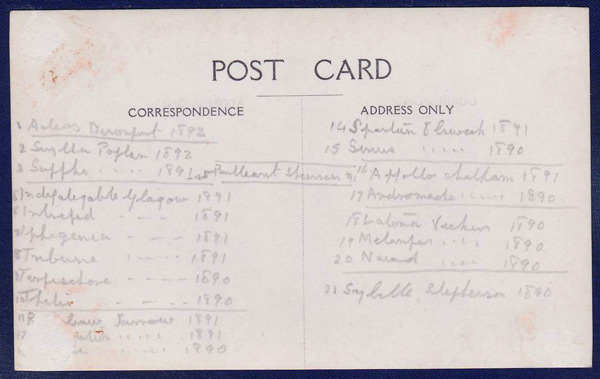 POST CARD
CORRESPONDENCE
1 Aeolus Devonport 1892
2 Scylla Poplar 1892
3 Sappho " " 1891
5 Indefatigable Glasgow 1891
6 Intrepid - - - 1891
7 Iphigenia - - 1891
8 Tribune - - - 1891
9 Terpsichore - - - 1890
10 Thetis - - - - 1890
11 Jarrow 1891
1891
1890
ADDRESS ONLY
14 Spartan Elswick 1891
15 Sirius " " " 1890
16 Apollo Chatham 1891
17 Andromache " " " 1890
18 Latona Vickers 1890
19 Melampus " " " 1890
20 Naiad " " " 1890
21 Sybille Stephenson 1890